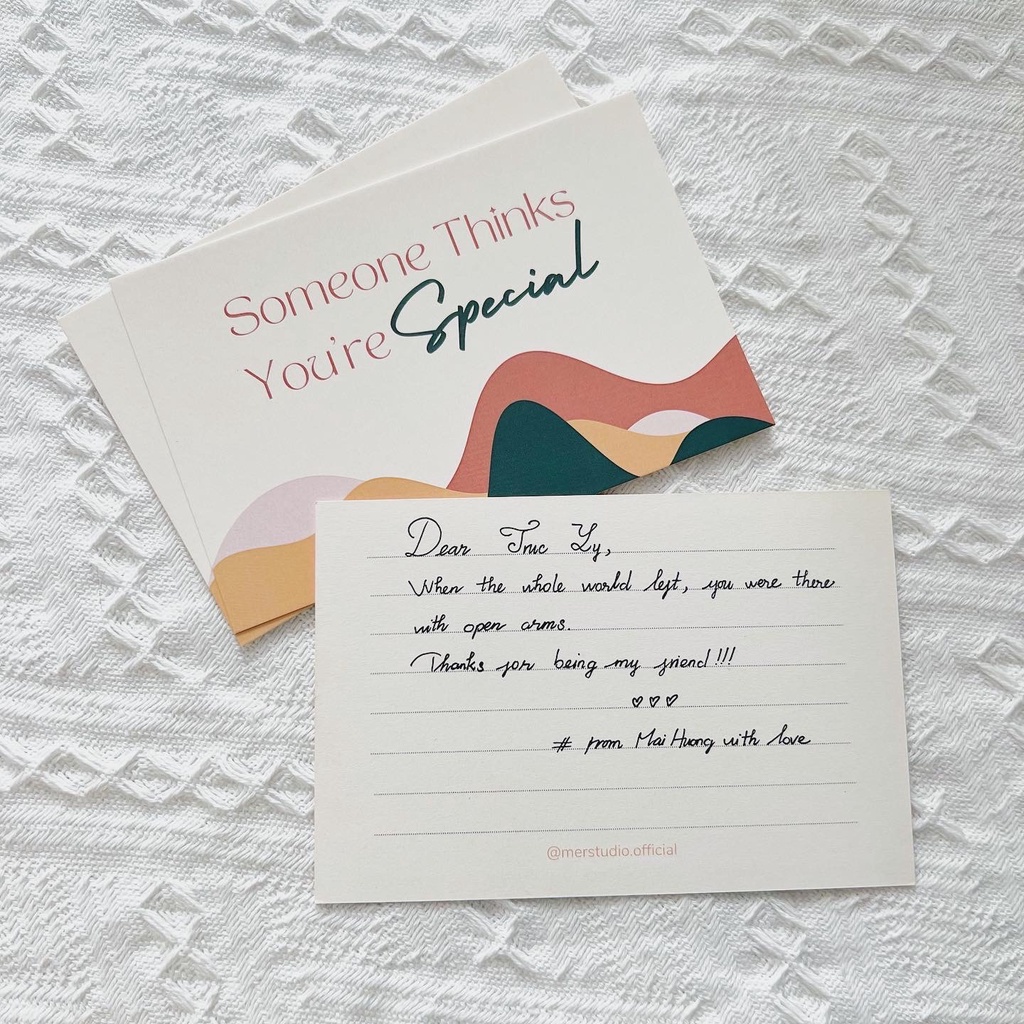 Someone Thinks
You're Special
Dear Truc Ly,
When the whole world left, you were there
with open arms.
Thanks for being my friend!!!
♡♡♡
# from Mai Huong with love
@merstudio.official